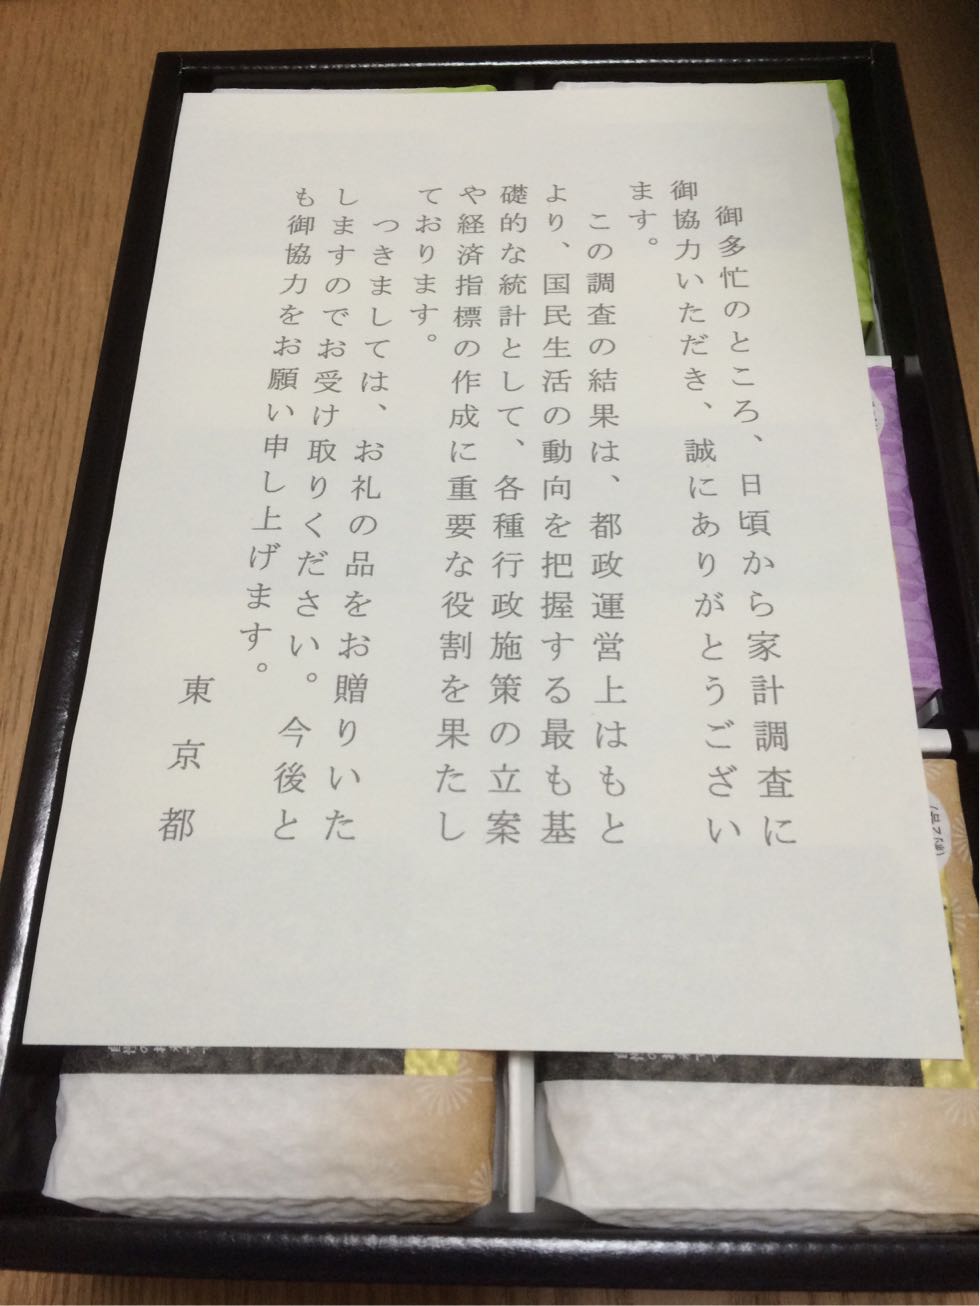 御多忙のところ、日頃から家計調査に
御協力いただき、誠にありがとうござい
ます。
この調査の結果は、都政運営上はもと
より、国民生活の動向を把握する最も基
礎的な統計として、各種行政施策の立案
や経済指標の作成に重要な役割を果たし
ております。
つきましては、お礼の品をお贈りいた
しますのでお受け取りください。今後と
も御協力をお願い申し上げます。
東京都